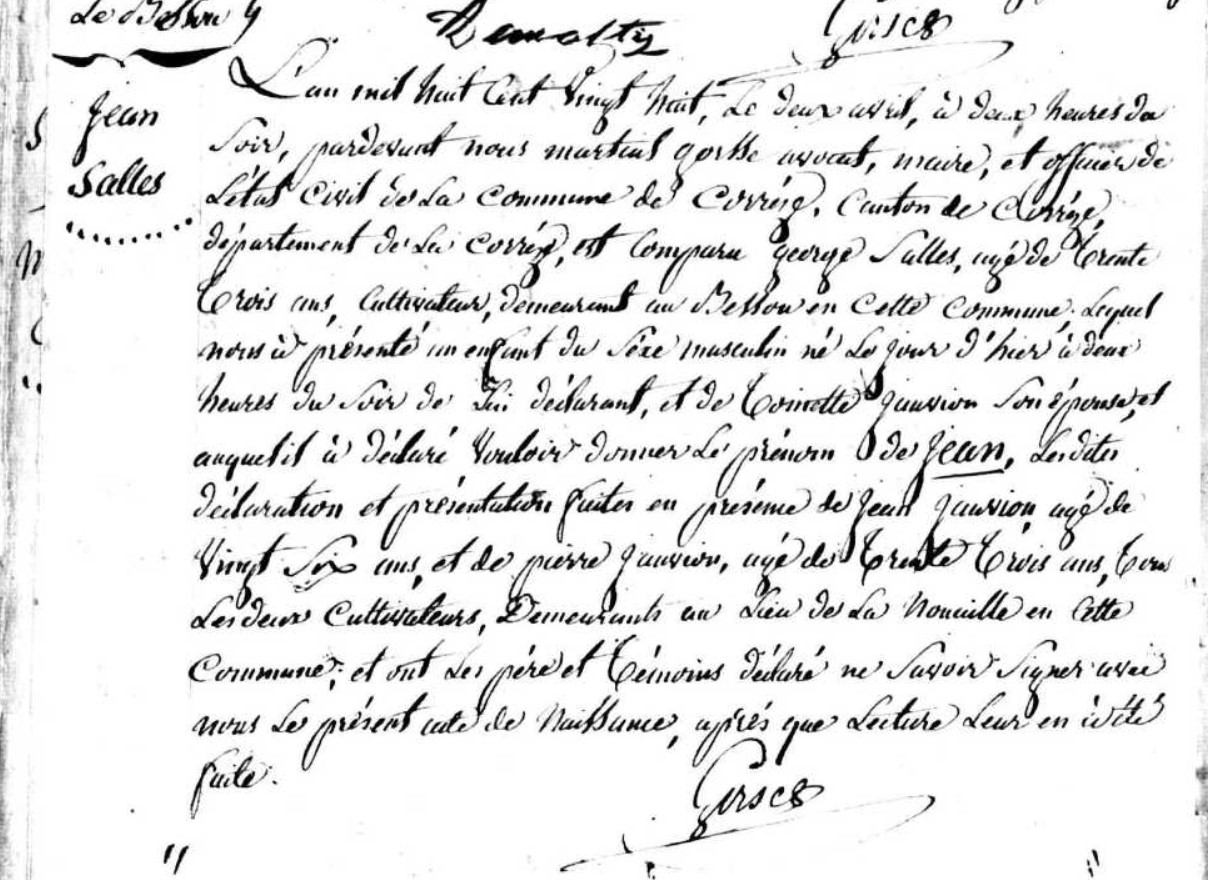 Le Besson
Jean
Salles
L'an mil huit Cent Vingt huit, Le deux avril, à deux heures du
Soir, pardevant nous martial gorsse avocat, maire, et officier de
L'état Civil de La Commune de Corrèze, Canton de Corrèze,
département de La Corrèze, est Comparu george Salles, agé de Trente
Trois ans, Cultivateur, demeurant au Besson en Cette Commune. Lequel
nous à présenté un enfant du Séxe masculin né Le jour d'hier à deux
heures du Soir de Lui déclarant, et de Toinette Jauvion Son épouse, et
auquel il à déclaré Vouloir donner Le prénom de Jean, Lesdites
déclaration et présentation faites en présence de Jean Jauvion agé de
Vingt Six ans, et de pierre Jauvion, agé de Trente Trois ans, Tous
Les deux Cultivateurs, Demeurants au Lieu de La Nouaille en Cette
Commune; et ont Les père et Témoins déclaré ne Savoir Signer avec
nous Le présent acte de Naissance, après que Lecture Leur en à été
faite.